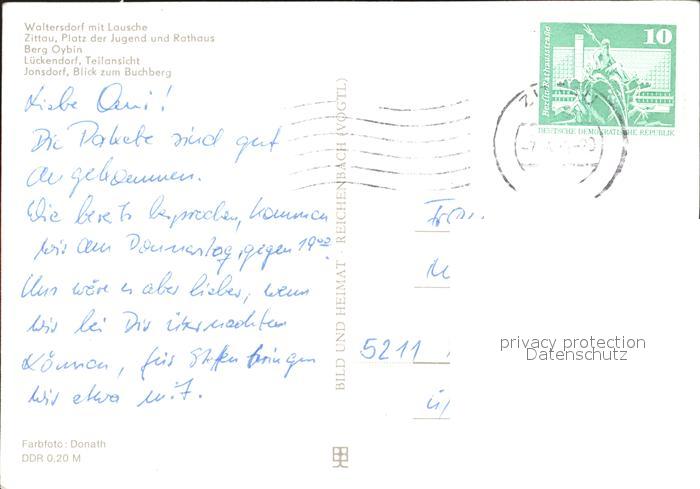 Waltersdorf mit Lausche
Zittau, Platz der Jugend und Rathaus
Berg Oybin
Lückendorf, Teilansicht
Jonsdorf, Blick zum Buchberg
Liebe Omi!
Die Pakete sind gut
angekommen.
Wie bereits besprochen, kommen
wir am Donnerstag, gegen 19⁰⁰.
Uns wäre es aber lieber, wenn
wir bei Dir übernachten
können, für Steffen bringen
wir etwas mit.
Farbfoto: Donath
DDR 0,20 M
BILD UND HEIMAT · REICHENBACH (VOGTL)
10
Berlin, Rathausstraße
DEUTSCHE DEMOKRATISCHE REPUBLIK
5211
privacy protection
Datenschutz